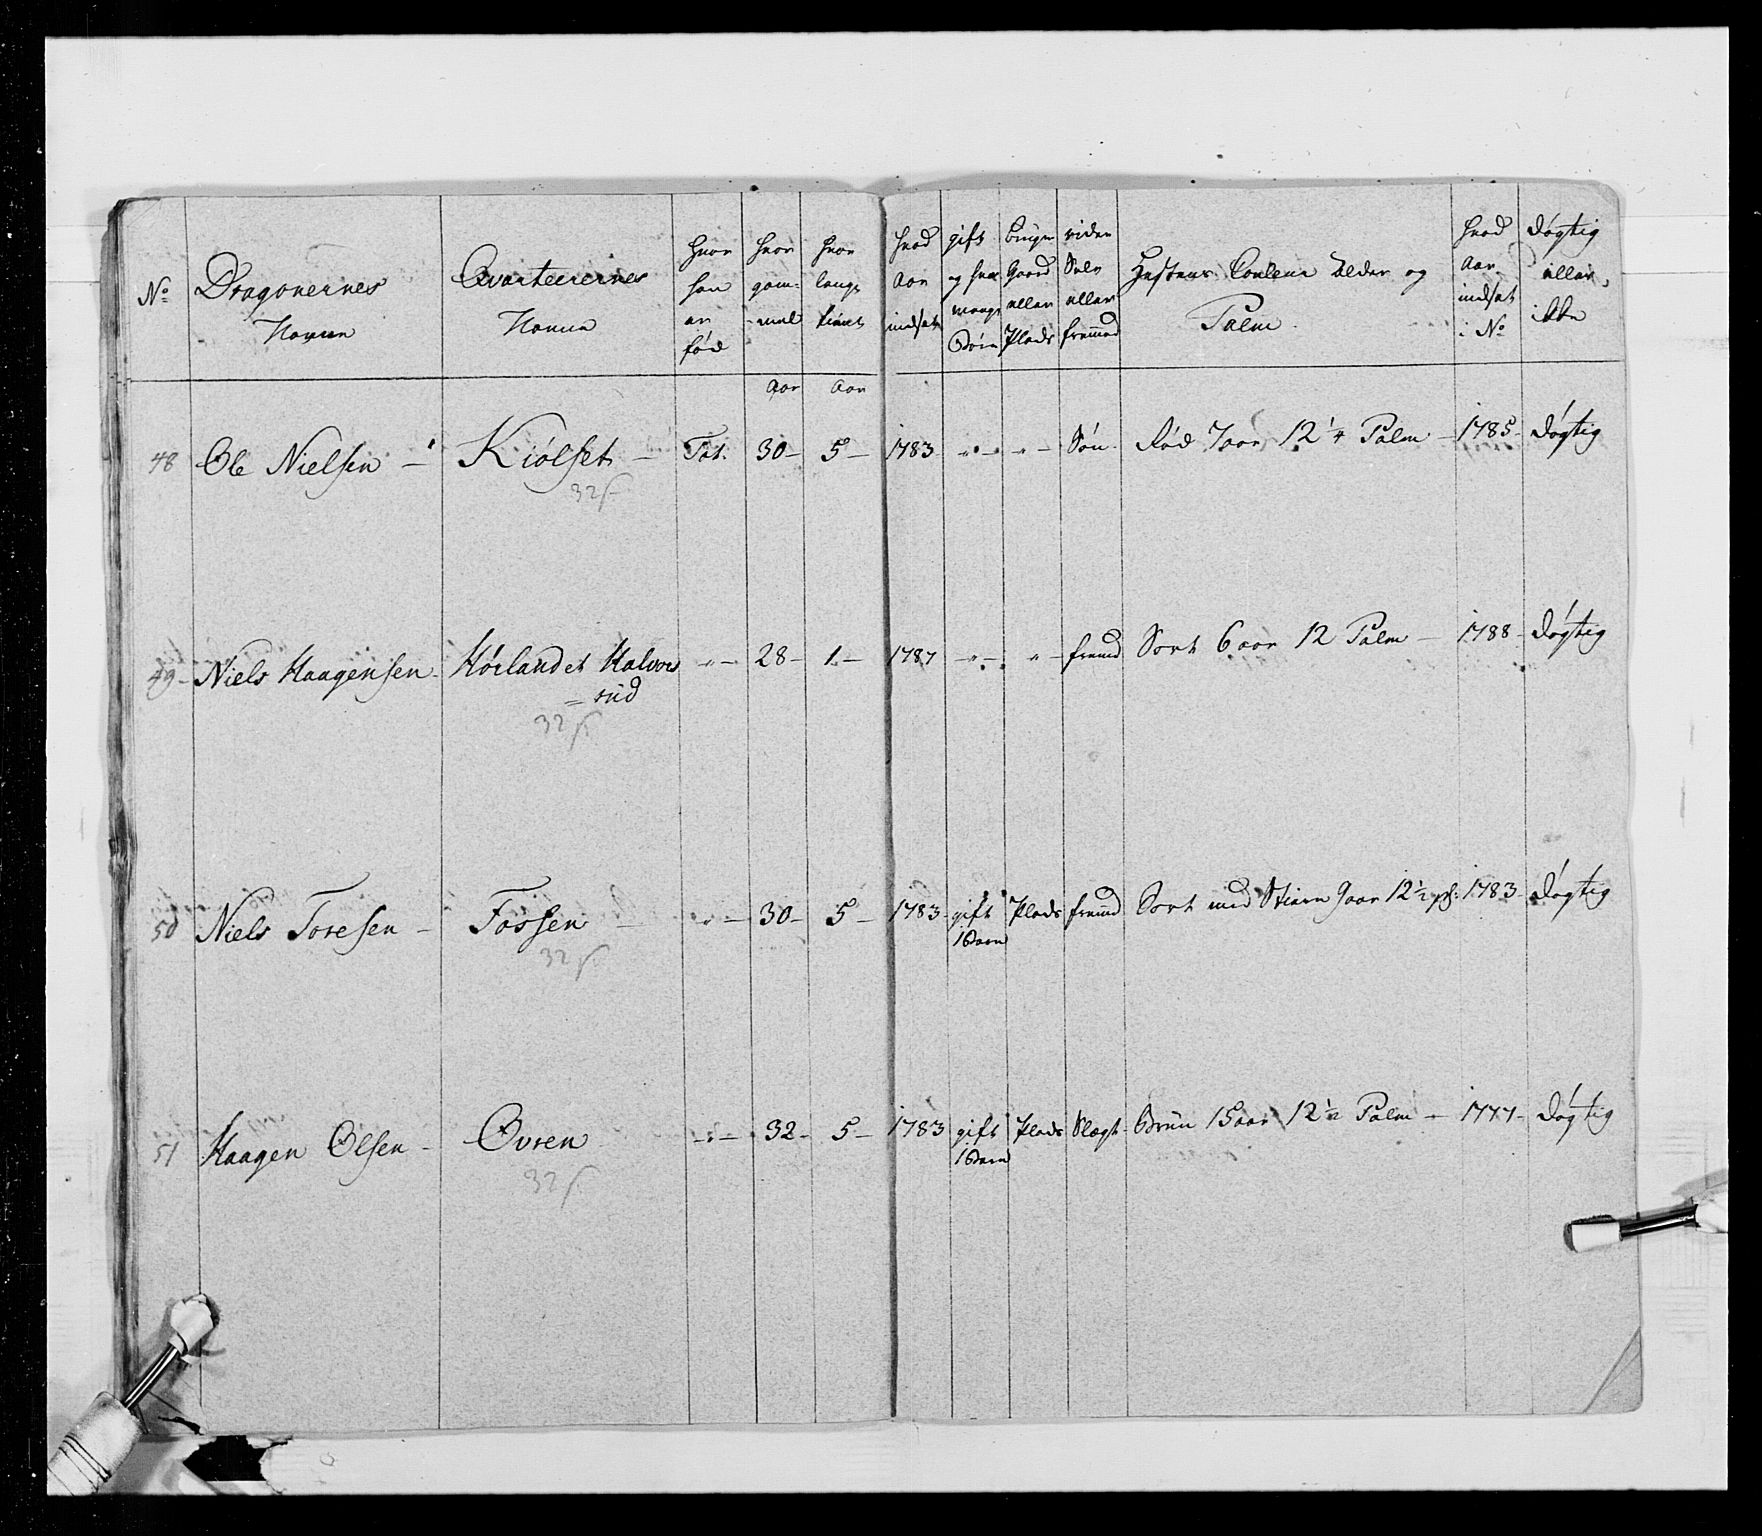 No
Dragonernes
Navne
Qvarteerernes
Navne
hvor
han
er
fød
hvor
gam-
-mel
hvor
længe
tient
hvad
Aar
indsat
gift
og hvor
mange
Børn
bruger
Gaard
eller
Plads
rider
Selv
eller
fremmed
Hestens Couleur Alder og
Palm
hvad
Aar
indsat
i No
døgtig
eller
ikke
Aar Aar
48 Ole Nielsen — Kiølset — Tot. 30 — 5 — 1783 — " — " — Søn Rød 7 aar 12 1/4 Palm — 1785 — døgtig
32 s
49 — Niels Haagensen — Hørlandet Halvors — " — 28 — 1 — 1787 — " — " — fremd Sort 6 aar 12 Palm — 1788 — døgtig
= rud
32 s
50 Niels Toresen — Fossen — " — 30 — 5 — 1783 — gift Plads fremd Sort med Stiern 9 aar 12 1/2 p: 1783 — døgtig
1 Barn
32 s
51 Haagen Olsen — Øvren — " — 32 — 5 — 1783 gift Plads Slægt — Brun 15 aar 12 1/2 Palm — 1777 — døgtig
1 Barn
32 s